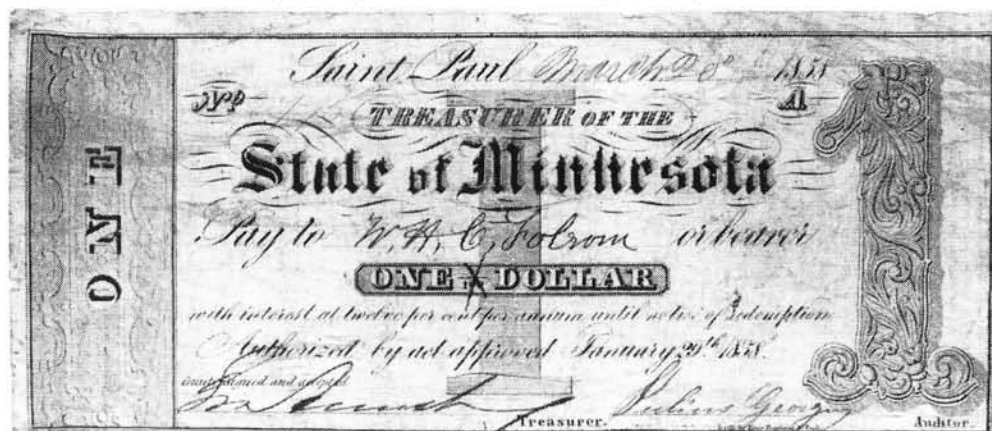 Saint Paul March 1858
No A
TREASURER OF THE
State of Minnesota
Pay to W. H. C. Folsom or bearer
ONE DOLLAR
with interest at twelve per cent per annum until notice of redemption
Authorized by act approved January 29th 1858.
Countersigned and
Julius Georgii
Treasurer. Auditor.
ONE
1